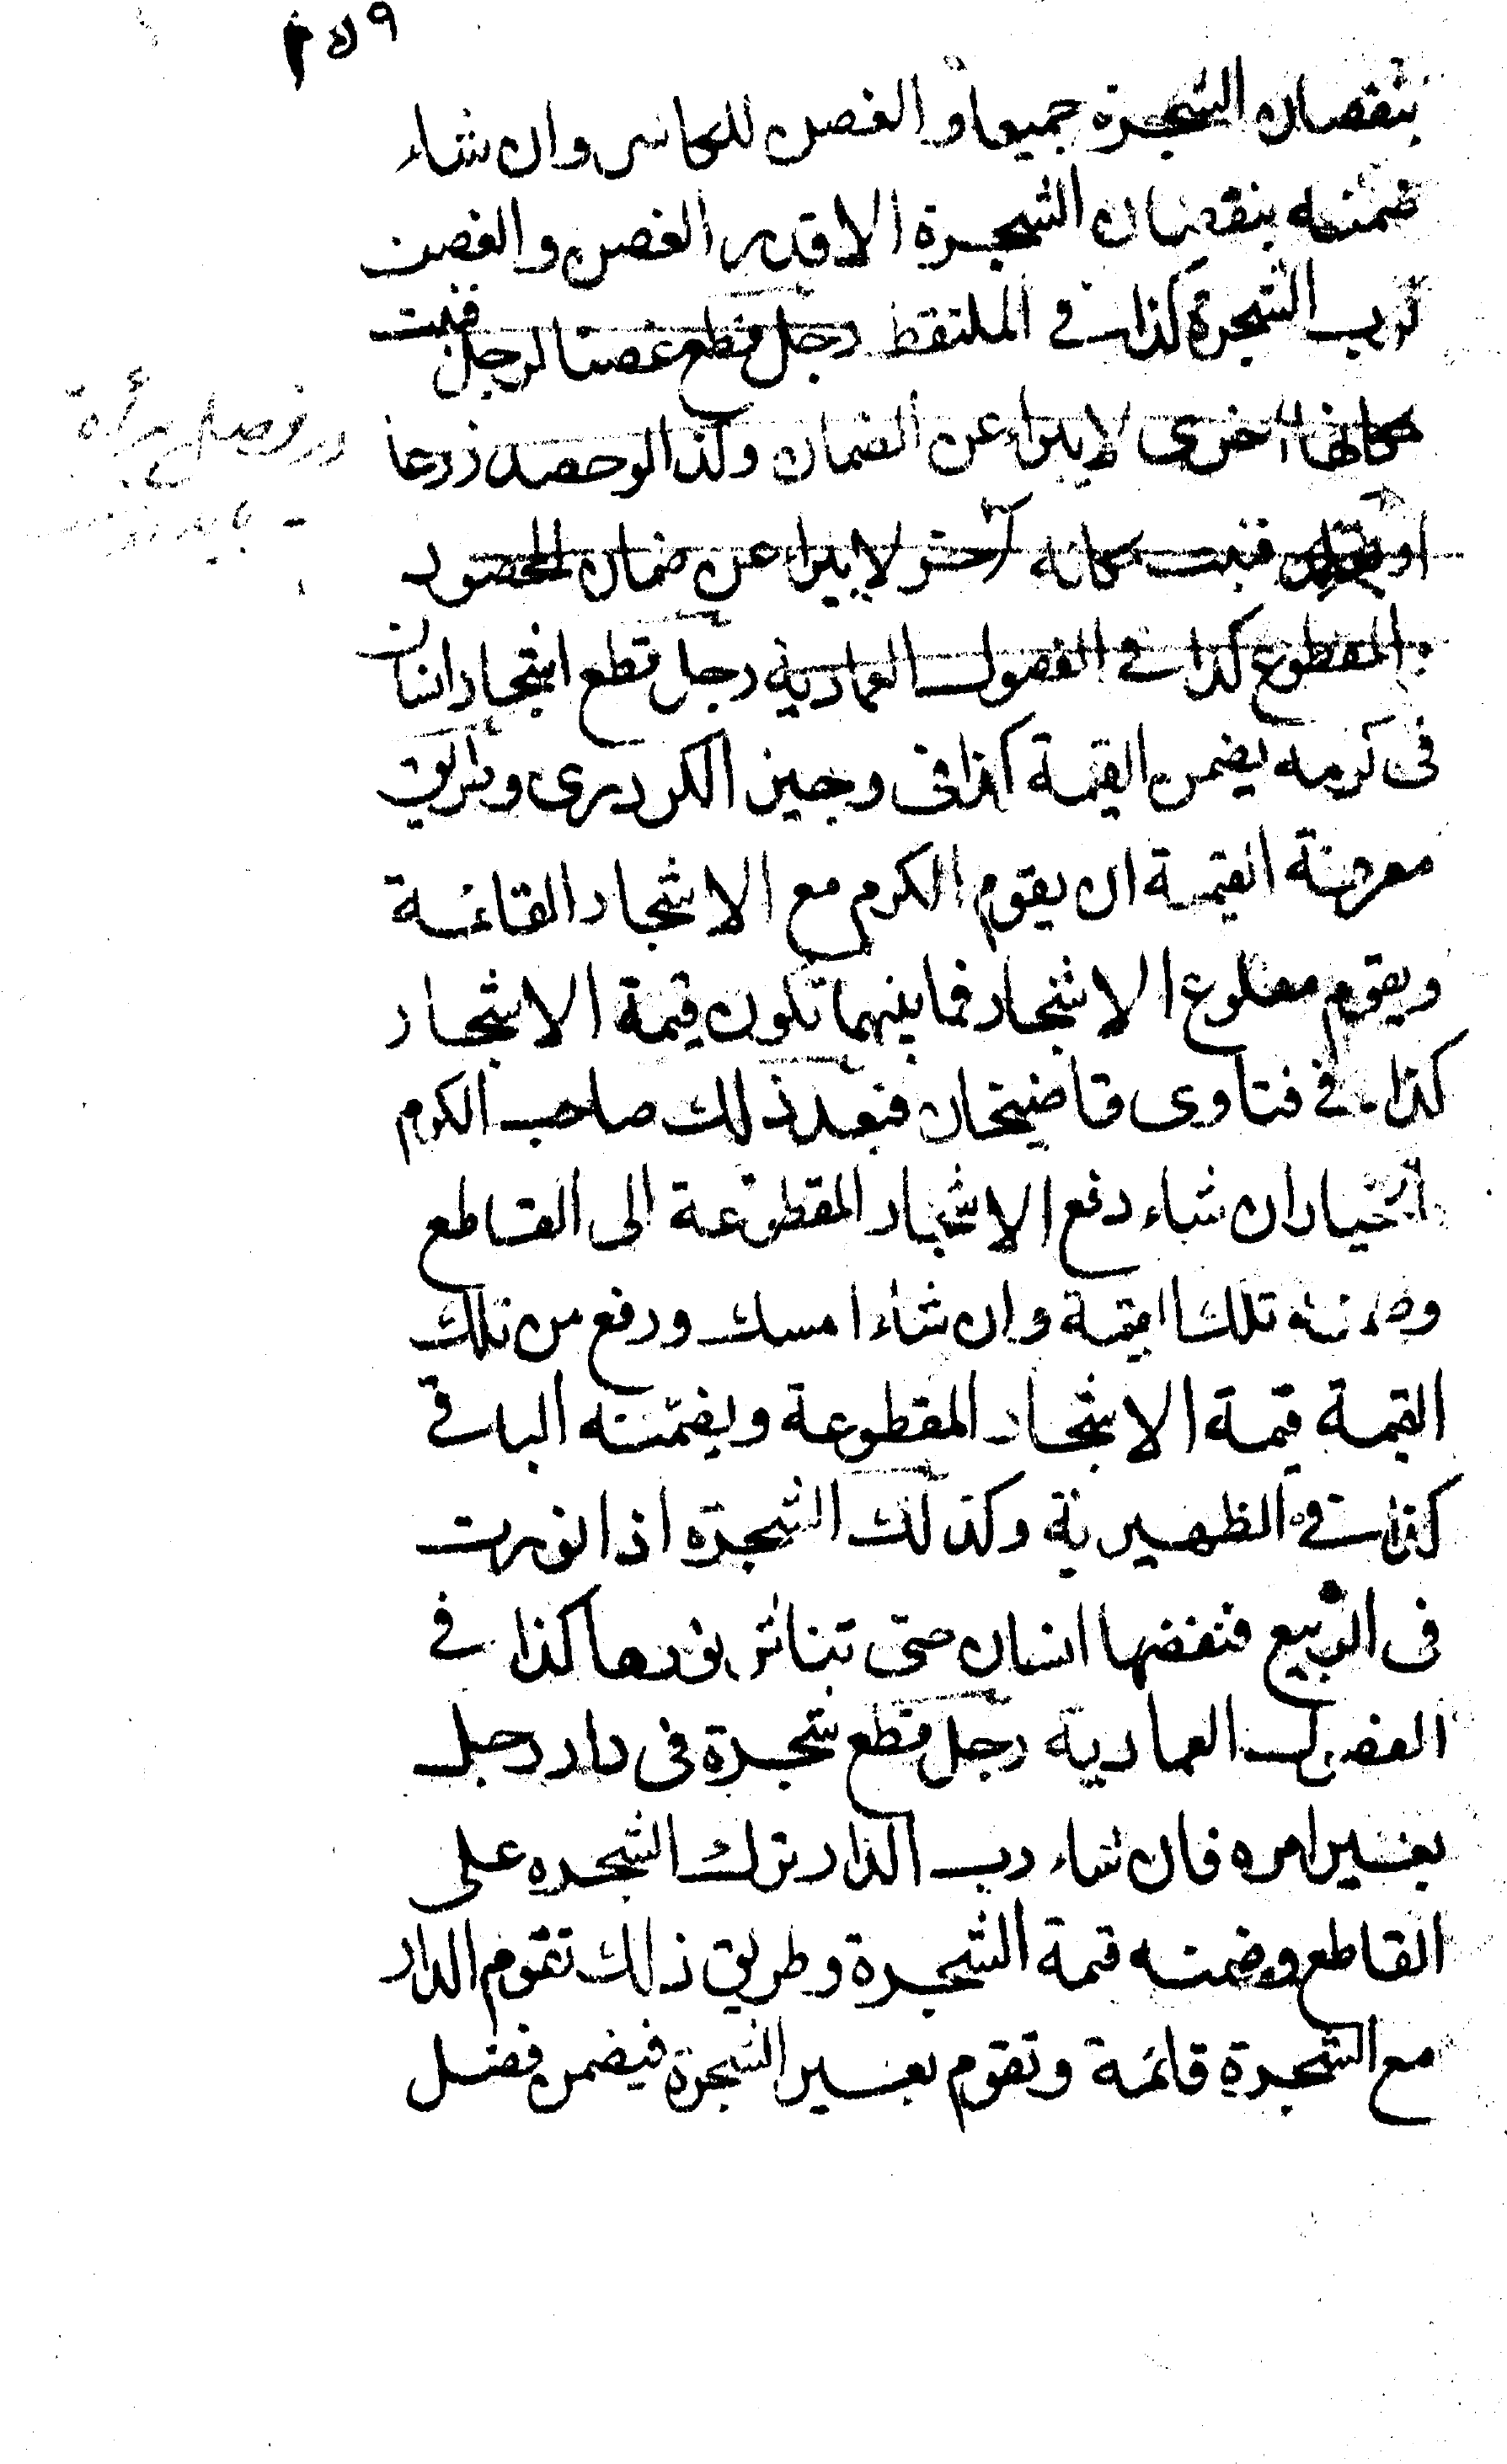 بنقصان الشجرة جميعا والغصن للكاسر وان شاء
ضمنه بنقصان الشجرة الا قدر الغصن والغصن
لرب الشجرة كذا في الملتقط رجل قطع غصنا لرجل فنبت
مكانها اخرى لا يبراء عن الضمان وكذا لو حصد زرعا
او فنبت مكانه آخر لا يبراء عن ضمان المحصود
المقطوع كذا في الفصول العمادية رجل قطع اشجار انسان
فى كرمه يضمن القيمة كذا فى وجيز الكردرى وطريق
معرفة القيمة ان يقوم الكرم مع الاشجار القائمة
ويقوم مقلوع الاشجار فما بينهما تكون قيمة الاشجار
كذا في فتاوى قاضيخان فبعد ذلك صاحب الكرم
الخيار ان شاء دفع الاشجار المقطوعة الى القاطع
وضمنه تلك القيمة وان شاء امسك ورفع من تلك
القيمة قيمة الاشجار المقطوعة ويضمنه الباقي
كذا في الظهيرية وكذلك الشجرة اذا نورت
فى الربيع فنفضها انسان حتى تناثر نورها كذا في
الفصول العمادية رجل قطع شجرة فى دار رجل
بغير امره فان شاء رب الدار ترك الشجره على
القاطع وضمنه قيمة الشجرة وطريق ذلك تقوم الدار
مع الشجرة قائمة وتقوم بغير الشجرة فيضمن فضل